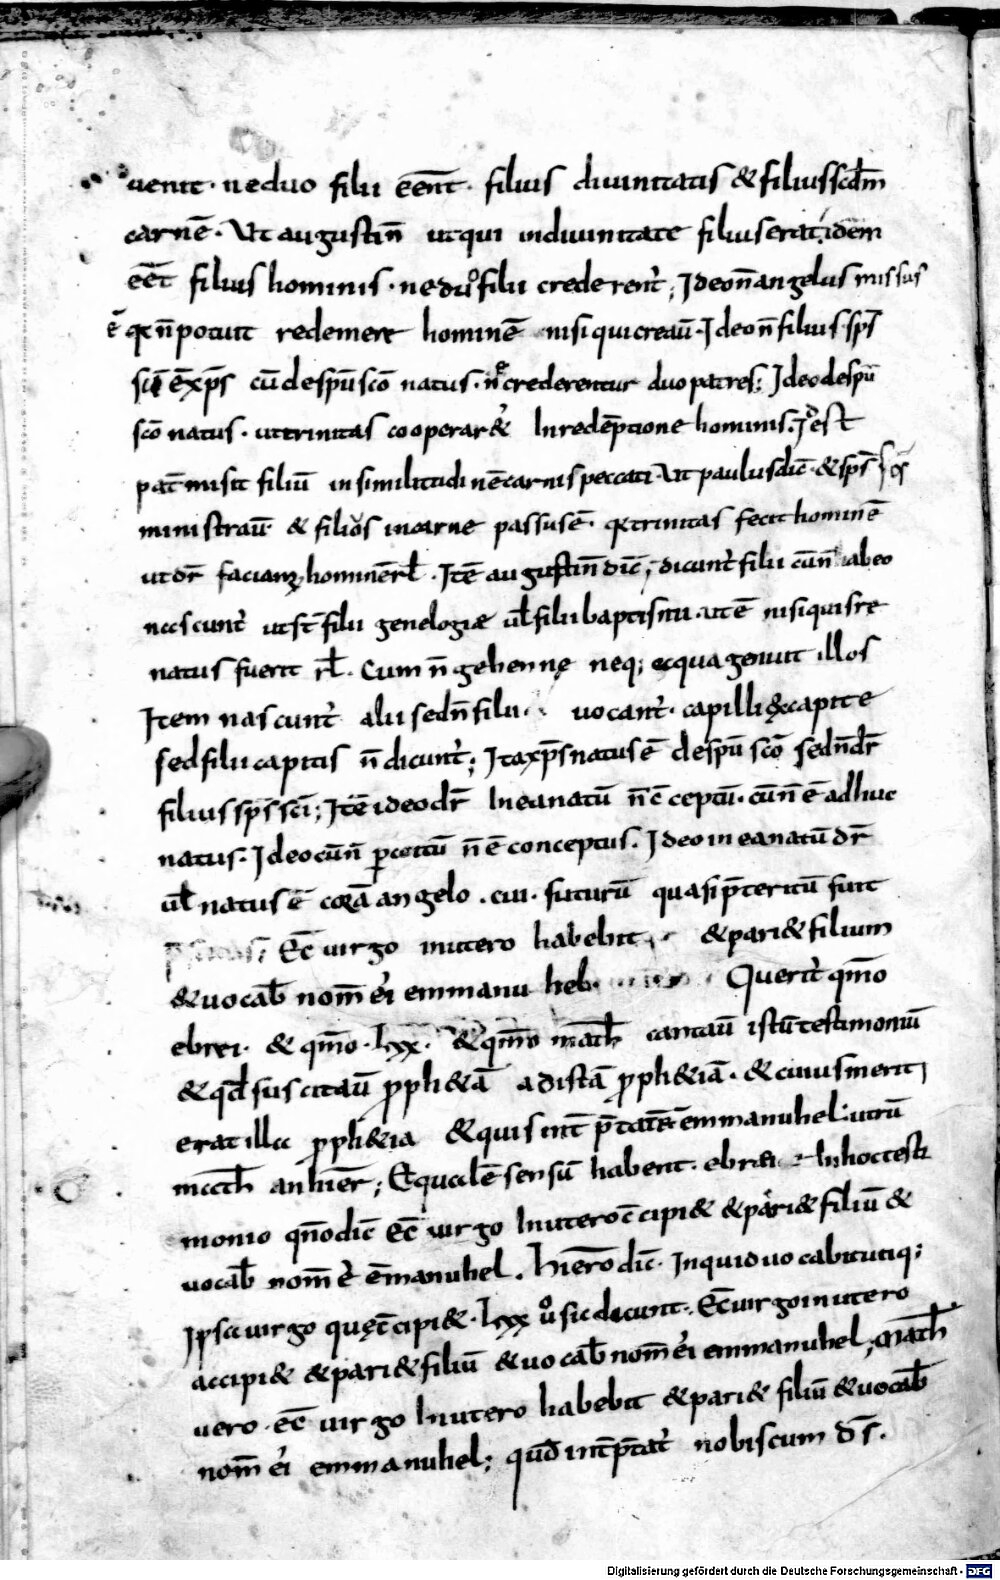 uenit · ne duo filii eēnt · filius diuinitatis & filius scdm
carnē · Ut augustiñ ut qui in diuinitate filius erat, idem
eēt filius hominis · ne duo filii crederent̃; Ideo ñ angelus missus
ē q̃ ñ potuit redemere hominē nisi qui creaũ · Ideo ñ filius sp̄s
cū de sp̄u sc̄o natus · ne crederentur duo patres; Ideo de sp̄u
sc̄o natus · ut trinitas cooperar& In redēptione hominis · Id est
pat̄ misit filiū in similitudinē carnis peccati · Ut paulus dic̄ · & sp̄s s̄c̄s
ministraũ · & filios in carne passus ē · q̃ trinitas fecit hominē
ut dr̄ faciamꝰ hominē rl̄ · Itē augustiñ dic̄; dicunt̃ filii cū ñ ab eo
nascunt̃ ut st̄ filii genelogiæ ul̄ filii baptismi · ut ē nisi quis re
natus fuerit rl̄ · Cum ñ gehennę neq; aqua genuit illos
Item nascunt̃ alii sed ñ filii · uocant̃ · capilli ex capite
sed filii capitis ñ dicunt̃; Ita xp̄s natus ē de sp̄u sc̄o sed ñ dr̄
filius sp̄s sc̄i; Itē ideo dr̄ In ea natū ñ c̄ceptū · cū ñ ē adhuc
natus · Ideo cū ñ p coitū ñ ē conceptus · Ideo in ea natū dr̄
ul̄ natus ē corā angelo · cui · futurū quasi p̄teritū fuit
Ecc̄ uirgo in utero habebit · & pari& filium
& uocab̄ nom̄ ei emmanu hel · Querit̃ qm̄o
ebrei · & qm̄o · lxx · & qm̄o math̄ cantaũ istū testimoniū
& qd̄ suscitaũ ꝓph&ā ad istā ꝓph&iā · & cuius meriti
erat illa ꝓph&ia & quis int̄p̄tatꝰ ē emmanuhel: utrū
math̄ an hier̄; Equalē sensū habent · ebrei In hoc testi
monio qn̄o dic̄ Ecc̄ uirgo In utero c̄cipi& & pari& filiū &
uocab̄ nom̄ ei ēmanuhel · Hiero dic̄ · Inquid uocabit utiq;
Ipsa uirgo quę c̄cipi& · Lxx ũ sic dicunt · Ecc̄ uirgo in utero
accipi& & pari& filiū & uocab̄ nom̄ ei emmanuhel; math̄
uero · ecc̄ uirgo In utero habebit & pari& filiū & uocab̄
nom̄ ei emmanuhel; qud̄ int̄p̄tat̃ nobiscum d̄s ·
Digitalisierung gefördert durch die Deutsche Forschungsgemeinschaft - DFG